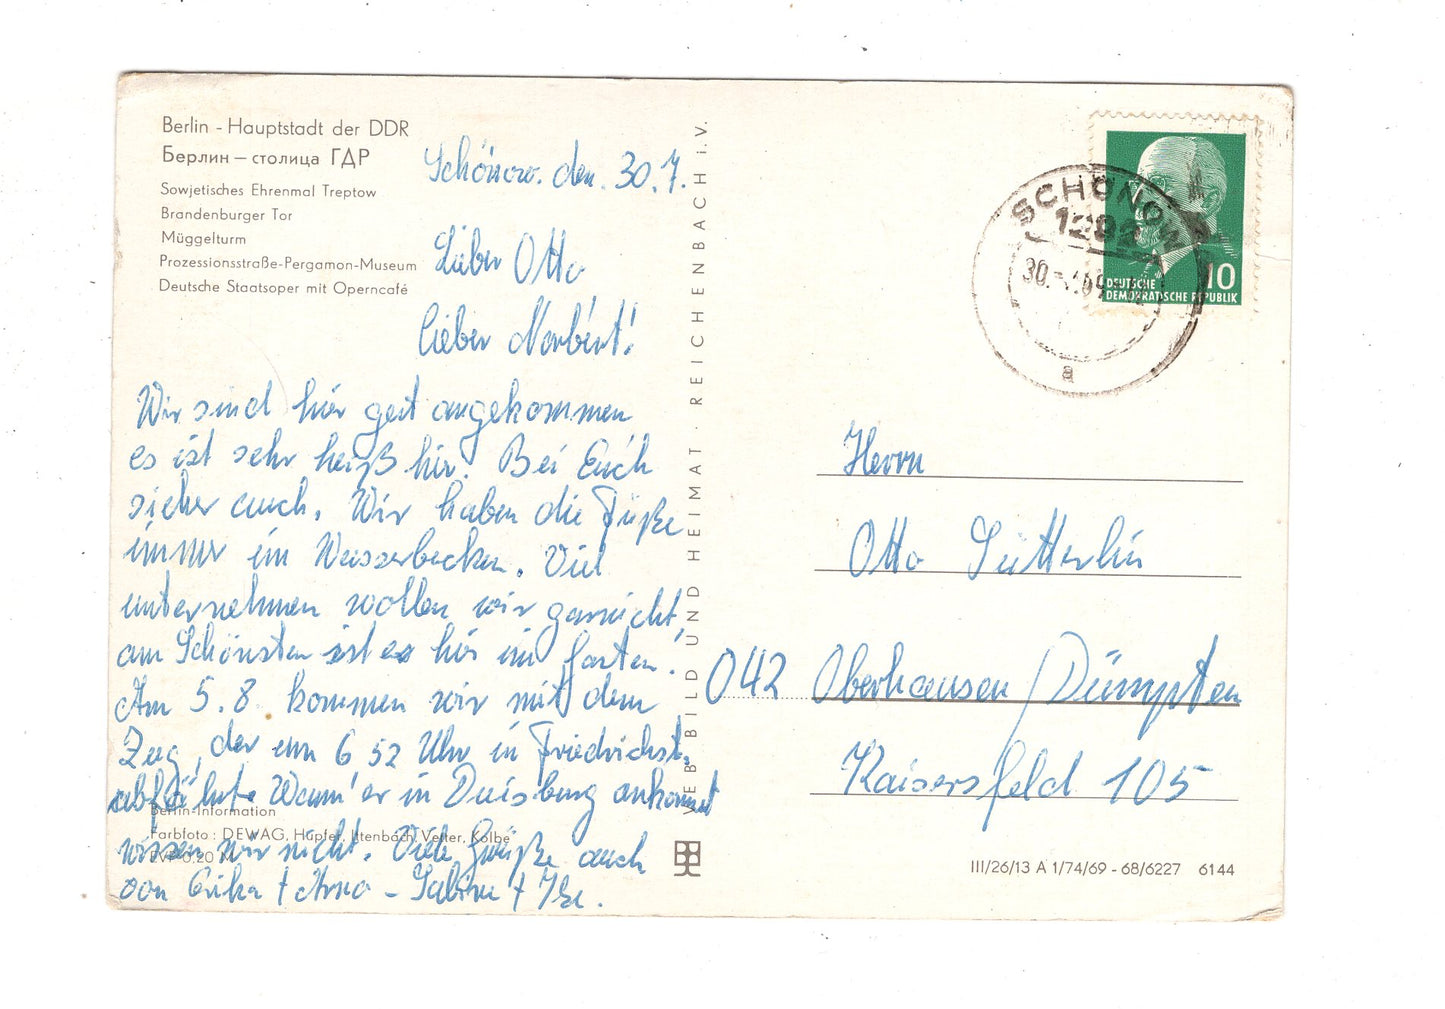 Berlin - Hauptstadt der DDR
Берлин – столица ГДР
Sowjetisches Ehrenmal Treptow
Brandenburger Tor
Müggelturm
Prozessionsstraße-Pergamon-Museum
Deutsche Staatsoper mit Operncafé
Schönow. den. 30.7.
Lieber Otto
lieber Norbert!
Wir sind hier gut angekommen
es ist sehr heiß hier. Bei Euch
sicher auch. Wir haben die Füße
immer im Wasserbecken. Viel
unternehmen wollen wir garnicht,
am Schönsten ist es hier im Garten!
Am 5.8. kommen wir mit dem
Zug, der um 6 52 Uhr in Friedrichst.
abfährt. Wann er in Duisburg ankommt
wissen wir nicht. Viele Grüße auch
von Erika + Arno - Sabine +
Berlin-Information
Farbfoto: DEWAG, Hüpfer, Ittenbach, Vetter, Kolbe
EVP 0,20 M
VEB BILD UND HEIMAT · REICHENBACH i. V.
SCHÖNOW
1282
30.
a
10
DEUTSCHE
DEMOKRATISCHE REPUBLIK
Herrn
Otto Sütterlin
042 Oberhausen/Dümpten
Kaisersfeld 105
III/26/13 A 1/74/69 - 68/6227 6144